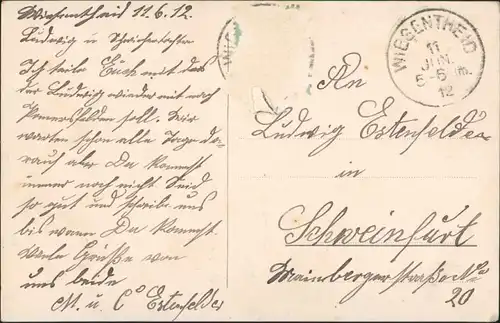 Wiesentheid 11.6.12.
Ludwig u
Ich teile Euch mit das
der Ludwig wieder mit nach
Pommersfelden soll. Wir
warten schon alle Tage da-
rauf aber Du kommst
immer noch nicht Seid
so gut und schreibe uns
bis wann Du kommst.
Viele Grüße von
uns beide
M. u. C Estenfelder
WIESENTHEID
11
JUN.
5-6 Nm.
12
An
Ludwig Estenfelder
in
Schweinfurt
Mainbergerstraße No
20